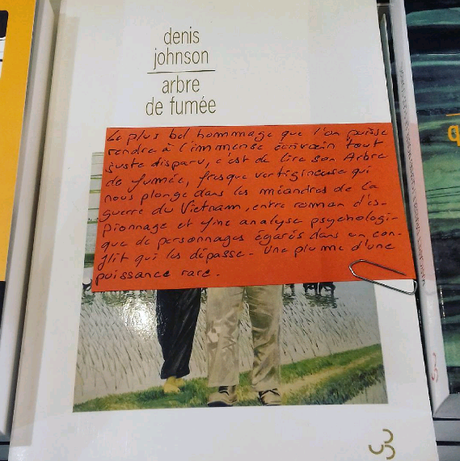 denis
johnson
arbre
de fumée
Le plus bel hommage que l'on puisse
rendre à l'immense écrivain tout
juste disparu, c'est de lire son Arbre
de fumée, fresque vertigineuse qui
nous plonge dans les méandres de la
guerre du Vietnam, entre roman d'es-
pionnage et fine analyse psychologi-
que de personnages égarés dans un con-
flit qui les dépasse. Une plume d'une
puissance rare.